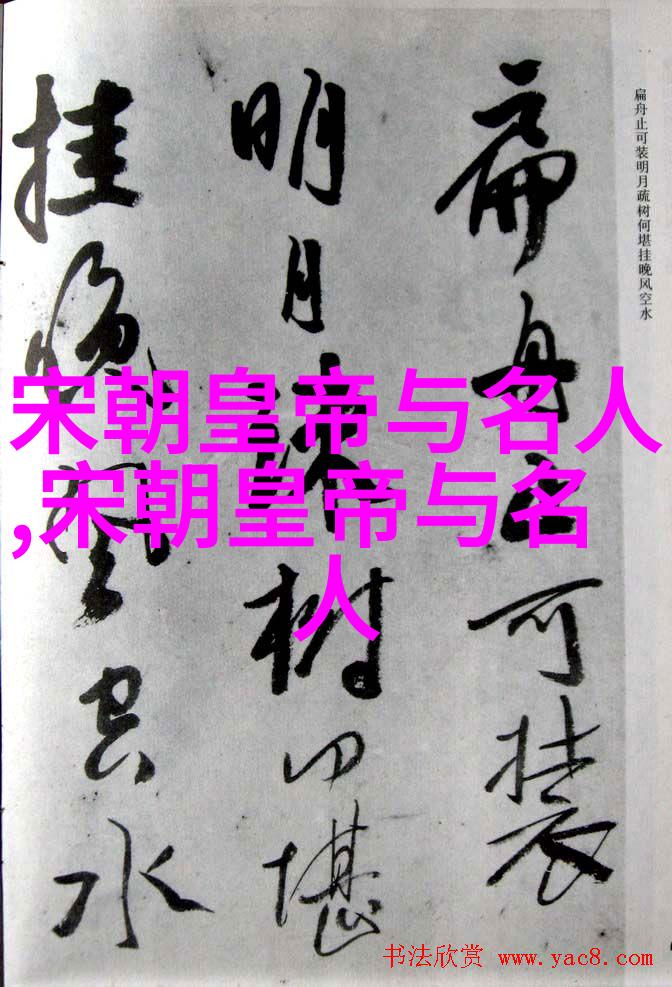 扁舟止可装
明月疏树何堪
挂晚风空水
扁舟止可装明月疏树何堪挂晚风空水
宋朝皇帝与名人
,宋朝皇帝与名
人
书法欣赏 www.yac8.com